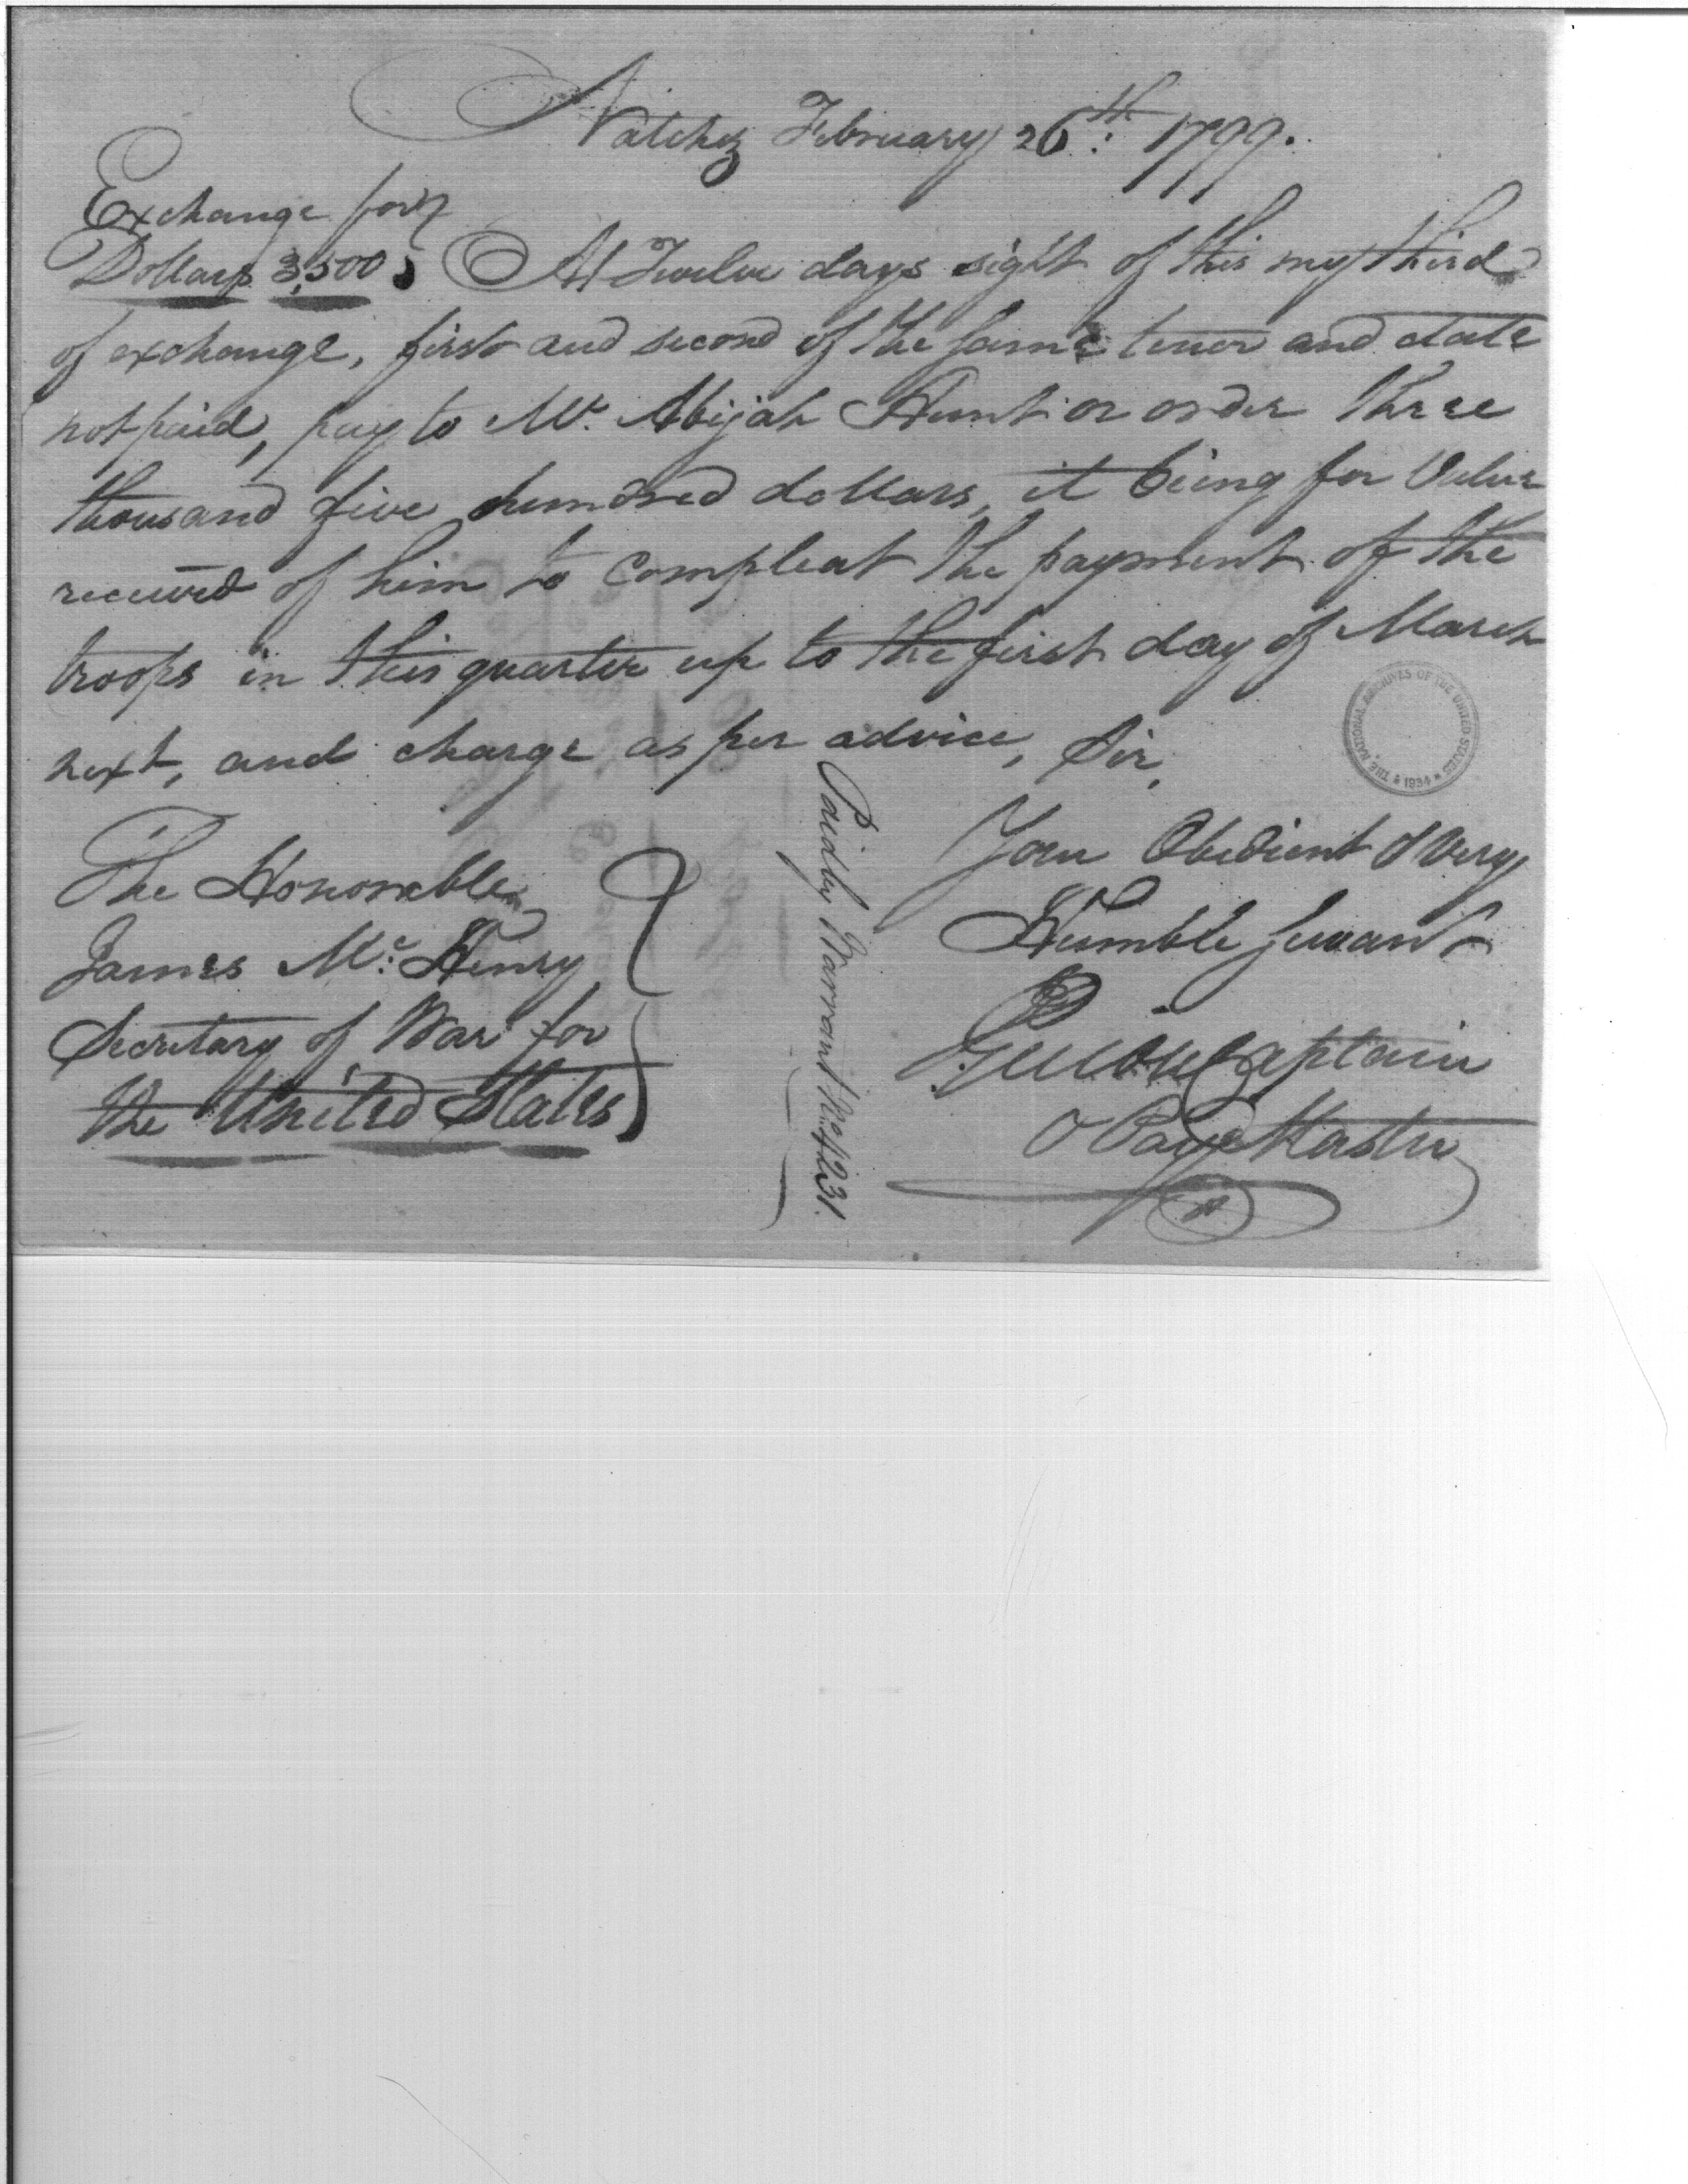 Natchez February 26th: 1799.
Exchange for
Dollars 3,500
At Twelve days sight of this my third
of exchange, first and second of the same tenor and date
not paid, pay to Mr. Abijah Hunt or order three
thousand five hundred dollars, it being for Value
received of him to compleat the payment of the
troops in this quarter up to the first day of March
next, and charge as per advice, Sir,
Your Obedient & Very
Humble Servant
Captain
& Pay Master
The Honorable
James Mc: Henry
Secretary of War for
the United States
Paid by Warrant No. 4231.
THE NATIONAL ARCHIVES OF THE UNITED STATES * 1934 *